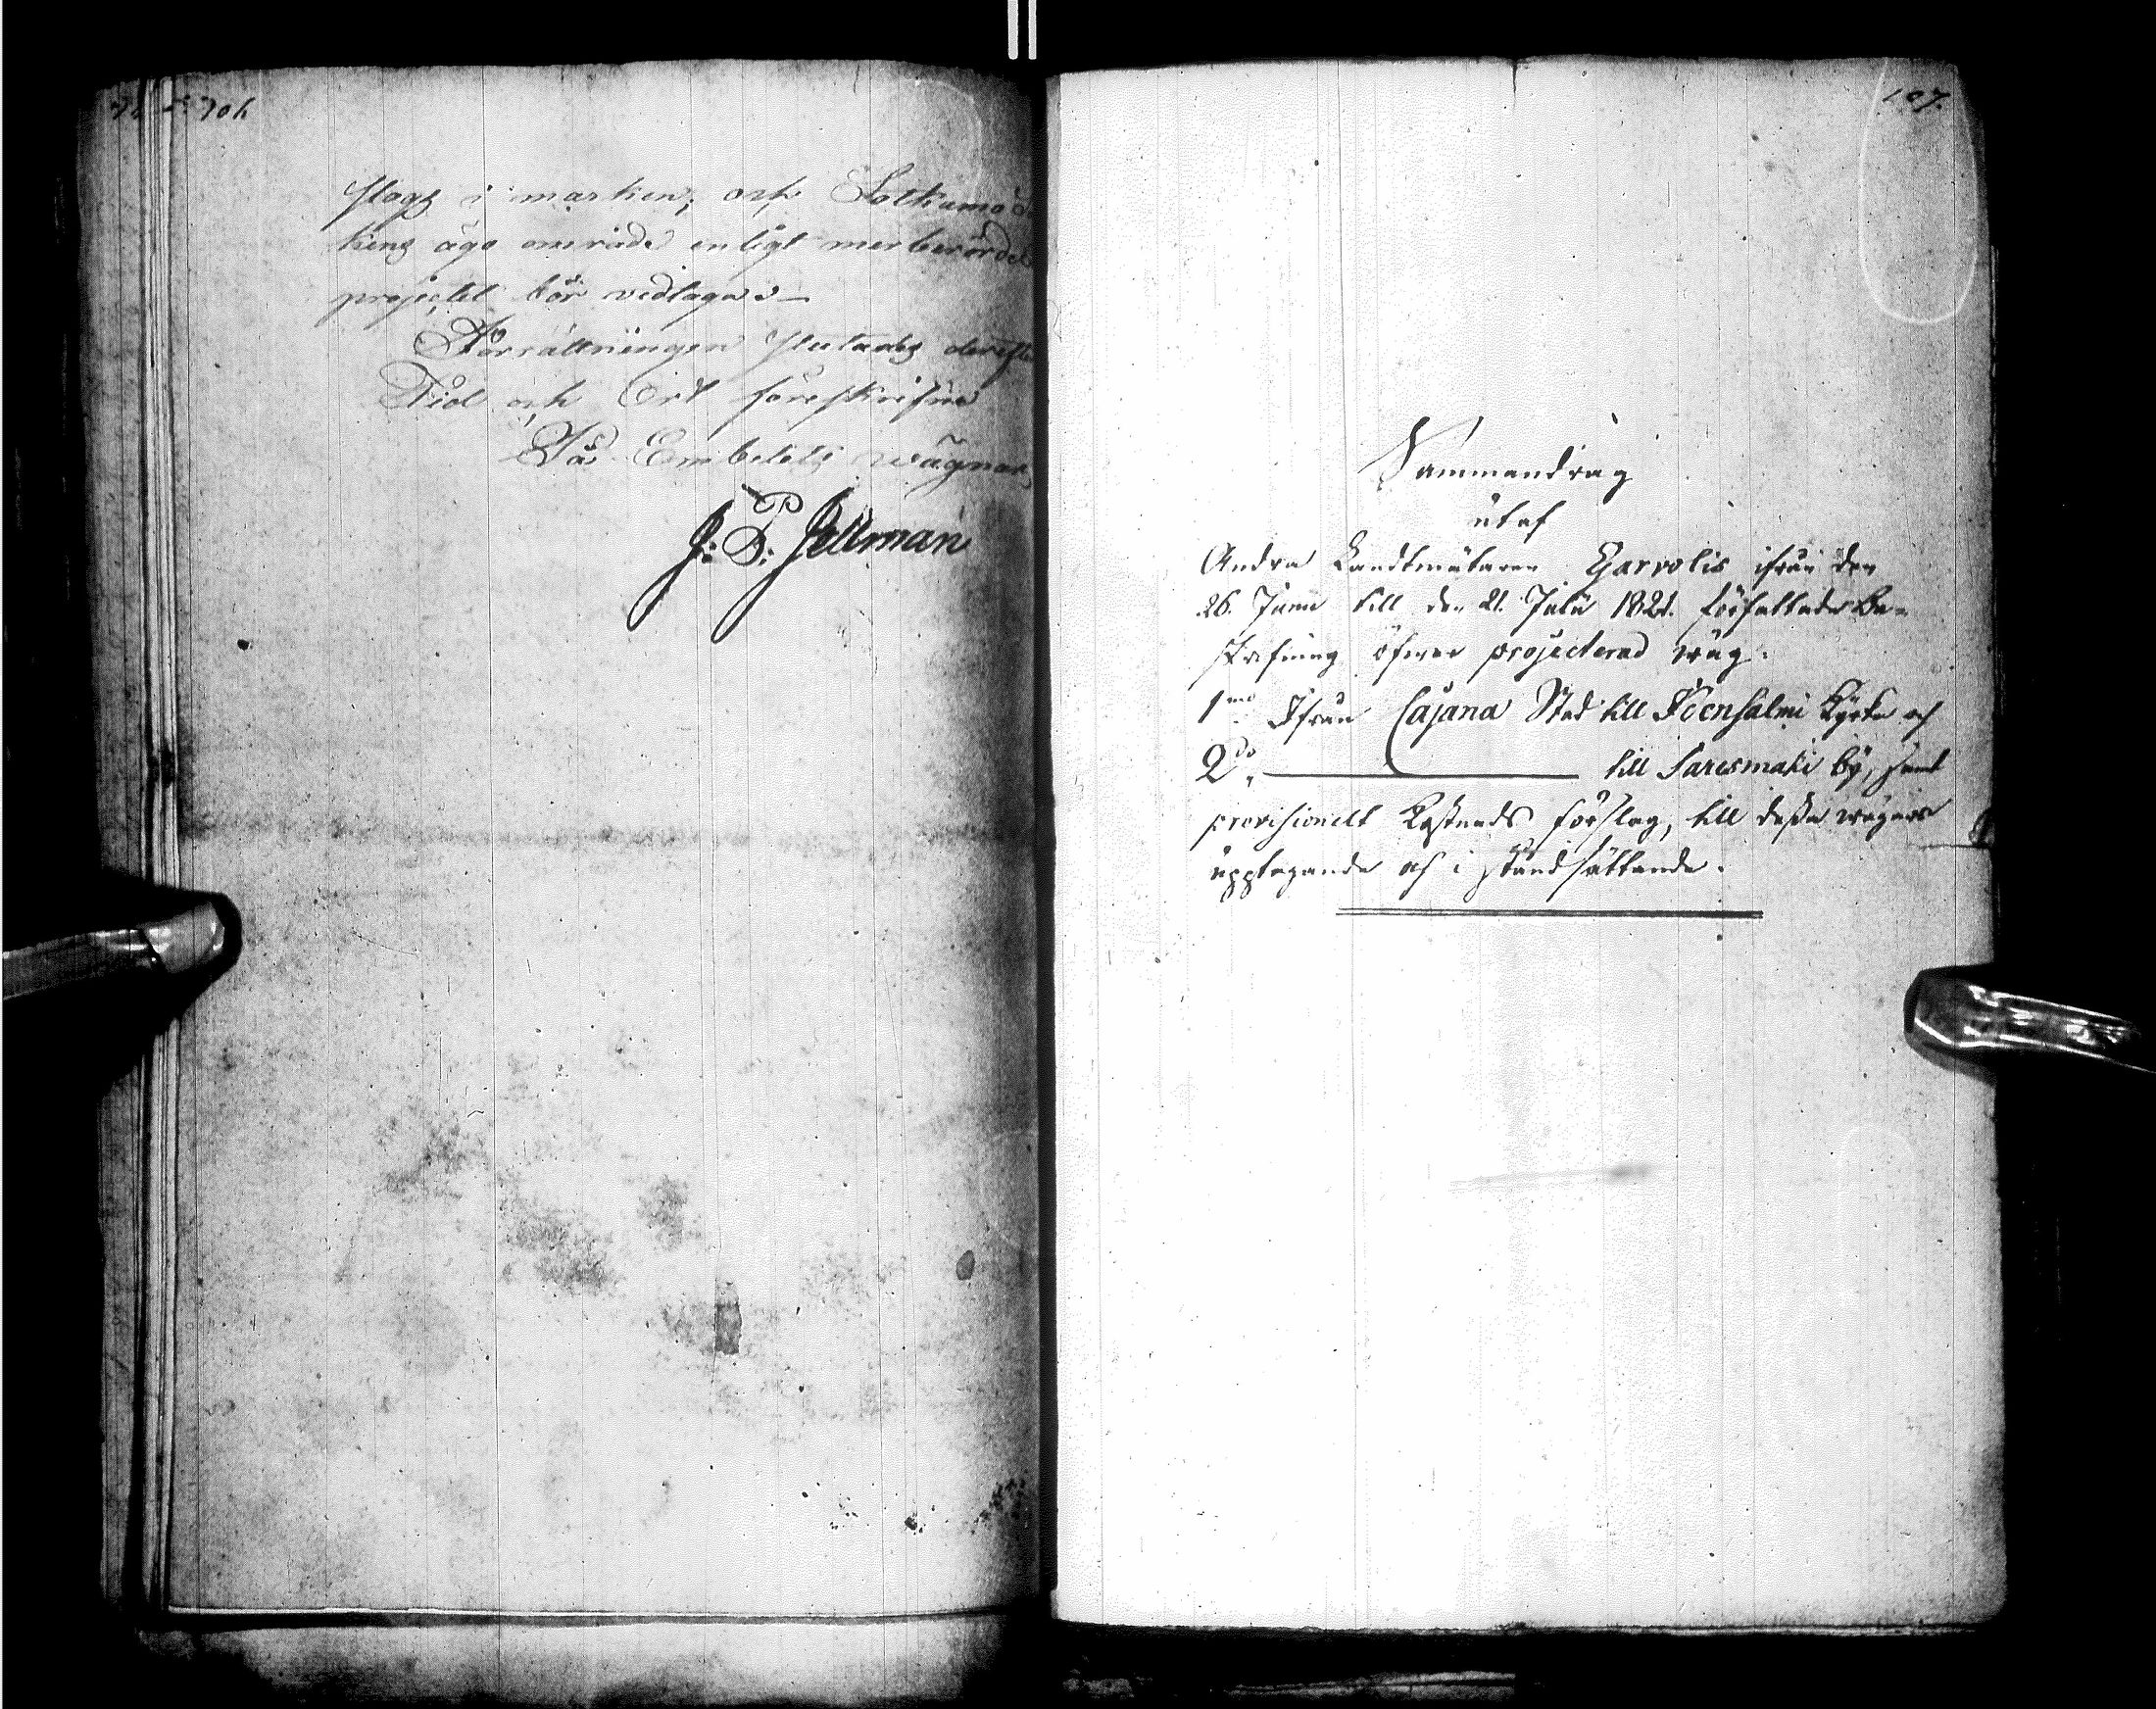 706
slags i marken, och Sotkamo
kens ägo område enligt merberörde
projectet bör vedtagas
Förrättningen slutades derefter
Tid och Ort föreskrifne
På Embetets wägnar,
J: P: Jellman
107.
Sammandrag
utaf
Andra Landtmätaren Garvolis ifrån den
26. Junii till den 21. Julii 1821. författade Be-
skrifning öfwer projecterad wäg.
1mo Ifrån Cajana Stad till Idensalmi Kyrka och
2do till Saresmäki by, samt
provisionelt Kostnads förslag, till dessa wägars
upptagande och i ståndsättande.